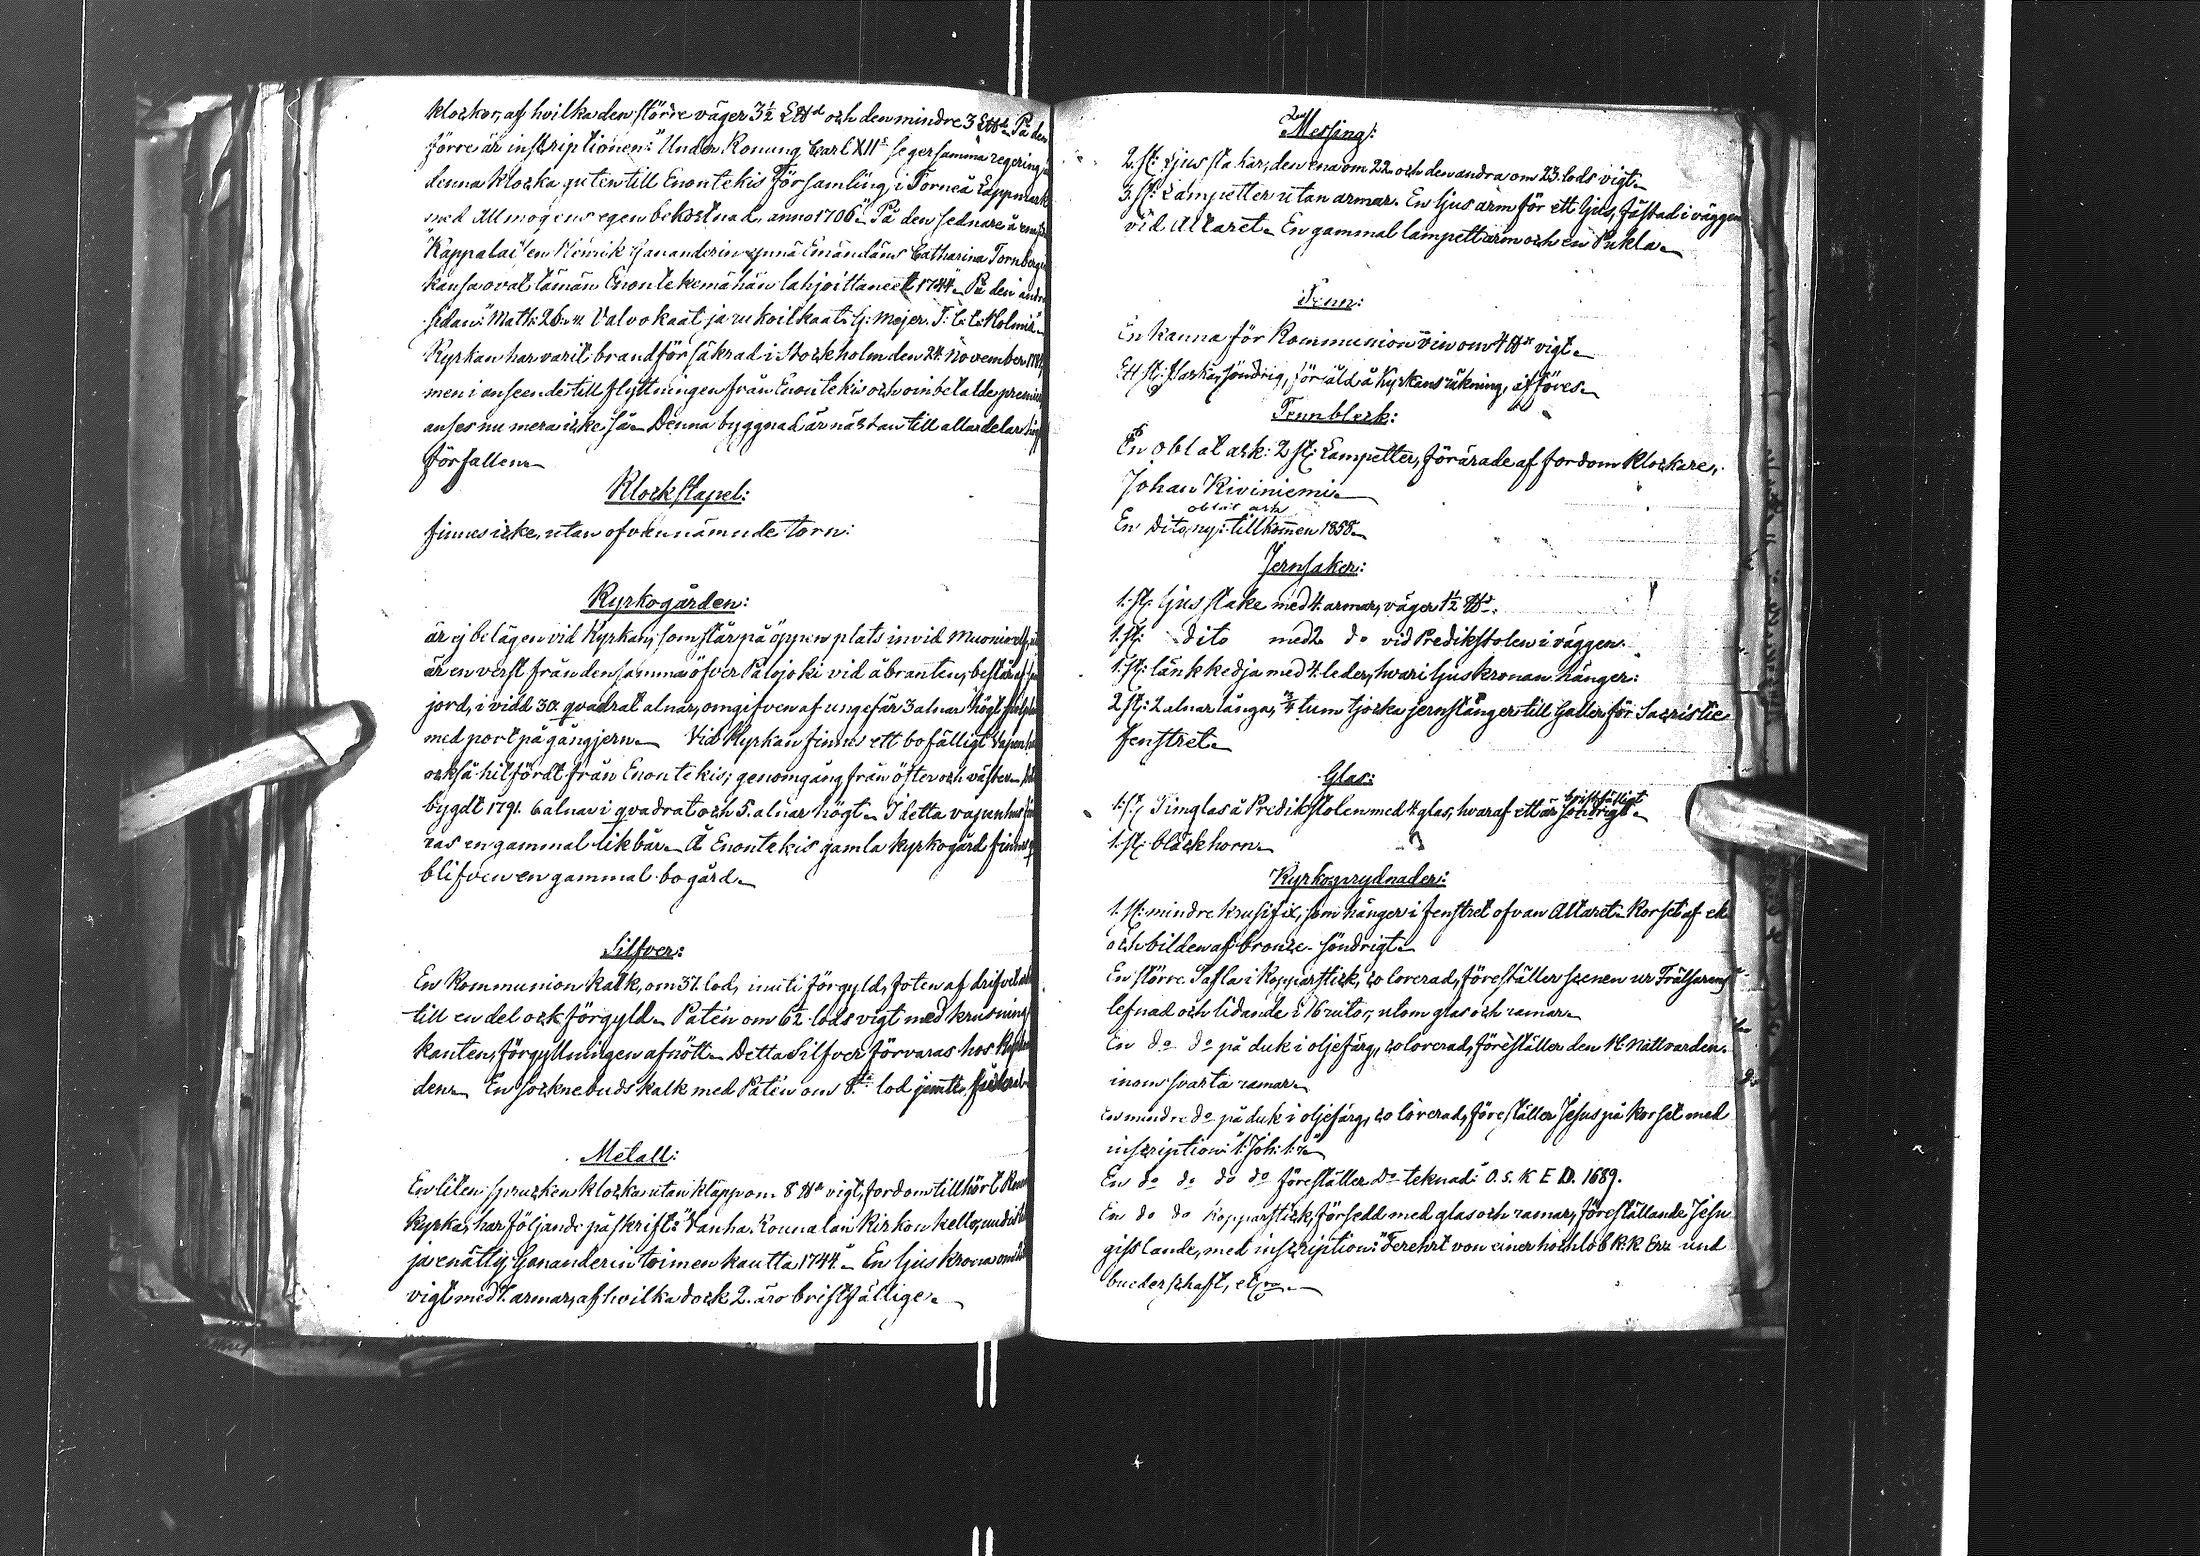 klockor, af hvilka den större väger 3½ L℔d och den mindre 3 L℔d. På den
förre är inskriptionen: "Under Konung Carl XII:s segersamma regering
denna klocka guten till Enontekis Församling, i Torneå Lappmark
med Allmogens egen bekostnad, anno 1706". På den sednare å ena
"Kappalaisen Henrik Gananderin ynnä Emändäns Catharina Tornberg
kansa ovat tämän Enontekemähän lahjoittaneet 1744". På den andra
sidan: "Matt: 26: v. 41. Valvokaat ja rukoilkaat. G: Mejer.
Kyrkan har varit brandförsäkrad i Stockholm den 24. November
men i anseende till flyttningen från Enontekis och oinbetalde
anses nu mera icke så. Denna byggnad är nästan till alla delar
förfallen.
Klockstapel:
finnes icke, utan ofvannämnde torn:
Kyrkogården:
är ej belägen vid Kyrkan, som står på öppen plats invid Muonioelf,
är en verst från densamma öfver Palojoki vid åbranten, består af
jord, i vidd 30 quadrat alnar, omgifven af ungefär 3 alnar högt
med port på gångjern. Vid Kyrkan finnes ett bofälligt
också hitfördt från Enontekis; genomgång från öster och väster.
bygdt 1791. 6 alnar i qvadrat och 5. alnar högt. I detta vapenhus
ras en gammal likbår. Å Enontekis gamla kyrkogård finnes
blifven en gammal bogård.
Silfver:
En Kommunion kalk, om 37. lod, inuti förgyld, foten af drifvet
till en del ock förgyld. Patén om 6½ lods vigt med krusning
kanten, förgyllningen afnött. Detta Silfver förvaras hos
den. En socknebuds kalk med Patén om 8. lod jemte
Metall:
En liten sprucken klocka utan kläpp om 8 ℔ vigt, fordom tillhört
kyrka, har följande påskrift: "Vanha Rounalan Kirkon kello,
ja enätty Gananderin toimen kautta 1744." En ljuskrona om
vigt med armar, af hvilka dock 2. äro bristfällige.
Messing:
2. st: Ljusstakar, den ena om 22. och den andra om 23. lods vigt.
3. st: Lampetter utan armar. En ljusarm för ett ljus, fästad i väggen
vid Altaret. En gammal lampettarm och en Pukla.
Tenn:
En kanna för Kommunion vin om 4 ℔ vigt.
Ett st: flaska, söndrig, försåld å Kyrkans räkning, afföres.
Tennbleck:
En oblat ask: 2 st: Lampetter, förärade af fordom klockare,
Johan Kiviniemi.
oblat ask
En Dito, ny: tillkommen 1858.
Jernsaker:
1. st: ljusstake med 4. armar, väger 1½ ℔.
1. st: Dito med 2 do vid Predikstolen i väggen.
1. st: länkkedja med 4. leder, hvari ljuskronan hänger:
2 st: 2 alnar långa, ¾ tum tjocka jernstänger till Galler för Sacristie
fenstret.
Glas:
1. st: Timglas å Predikstolen med 4 glas, hvaraf ett är bristfälligt söndrigt.
1. st: bläckhorn.
Kyrkoprydnader:
1. st: mindre krusifix, som hänger i fenstret ofvan Altaret. Korset af ek
och bilden af bronze. söndrigt.
En större Tafla i Kopparstick, colorerad, föreställer scenen ur Frälsarens
lefnad och lidande i 16 rutor, utom glas och ramar.
En do do på duk i oljefärg, colorerad, föreställer den H. Nattvarden.
inom svarta ramar.
En mindre do på duk i oljefärg, colorerad, föreställer Jesus på korset med
inscription: "1: Joh: 1: 7."
En do do do do föreställer Do teknad: O. S. K E D. 1689.
En do do Kopparstick, försedd med glas och ramar, föreställande Jesu
gisslande, med inscription: "Ferehrt von einer hochlöb K.K Erz und
buederschaft, etc.